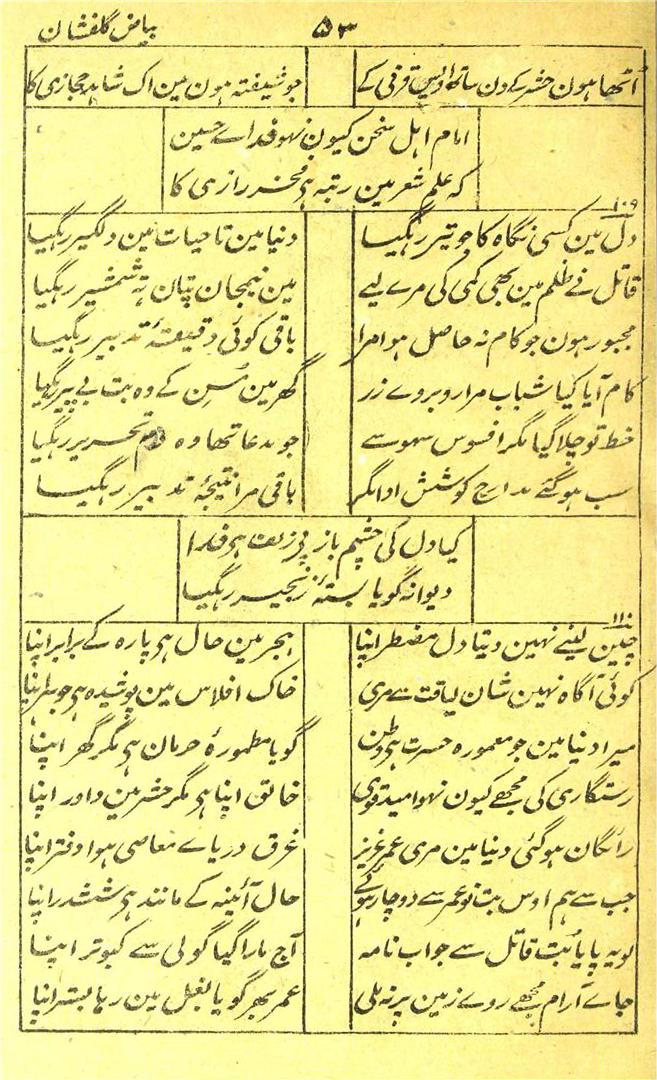 بیاض گلفشان
۵۳
اُٹھا ہون حشر کے دن ساتھ اویس قرنی کے
جو شیفتہ ہون مین اک شاہد حجازی کا
امام اہل سخن کیون نہو فدائے حسین
کہ علم شعر مین رتبہ ہی فخر رازی کا
۱۰۹
دل مین کسی نگاہ کا جو تیر رہگیا
دنیا مین تا حیات مین دلگیر رہگیا
قاتل نے ظلم مین بھی کمی کی مرے لیے
مین نیمجان تپان تہ شمشیر رہگیا
مجبور ہون جو کام نہ حاصل ہوا مرا
باقی کوئی دقیقۂ تدبیر رہگیا
کام آیا کیا شباب مرا روبروے زر
گھر مین مُسِن کے وہ بت بے پیر رہگیا
خط تو چلا گیا مگر افسوس سہو سے
جو مدعا تھا وہ دم تحریر رہگیا
سب ہو گئے مدارج کوشش ادا مگر
باقی مرا نتیجۂ تدبیر رہگیا
کیا دل کی چشم باز پی زلف ہی فدا
دیوانہ گویا بستۂ زنجیر رہگیا
۱۱۰
چین لینے نہین دیتا دل مضطر اپنا
ہجر مین حال ہی پارہ کے برابر اپنا
کوئی آگاہ نہین شان لیاقت سے مری
خاک افلاس مین پوشیدہ ہی جوہر اپنا
میرا دنیا مین جو معمورہ حسرت ہی وطن
گویا مطمورۂ حرمان ہی مگر گھر اپنا
رستگاری کی مجھے کیون نہو امید قوی
خالق اپنا ہی مگر حشر مین داور اپنا
رائگان ہو گئی دنیا مین مری عمر عزیز
غرق دریاے معاصی ہوا دفتر اپنا
جب سے ہم اوس بت نو عمر سے دوچار ہوئے
حال آئینہ کے مانند ہی ششدر اپنا
لو یہ پایا بُت قاتل سے جواب نامہ
آج مارا گیا گولی سے کبوتر اپنا
جاے آرام مجھے روے زمین پر نہ ملی
عمر بھر گویا بغل مین رہا بستر اپنا